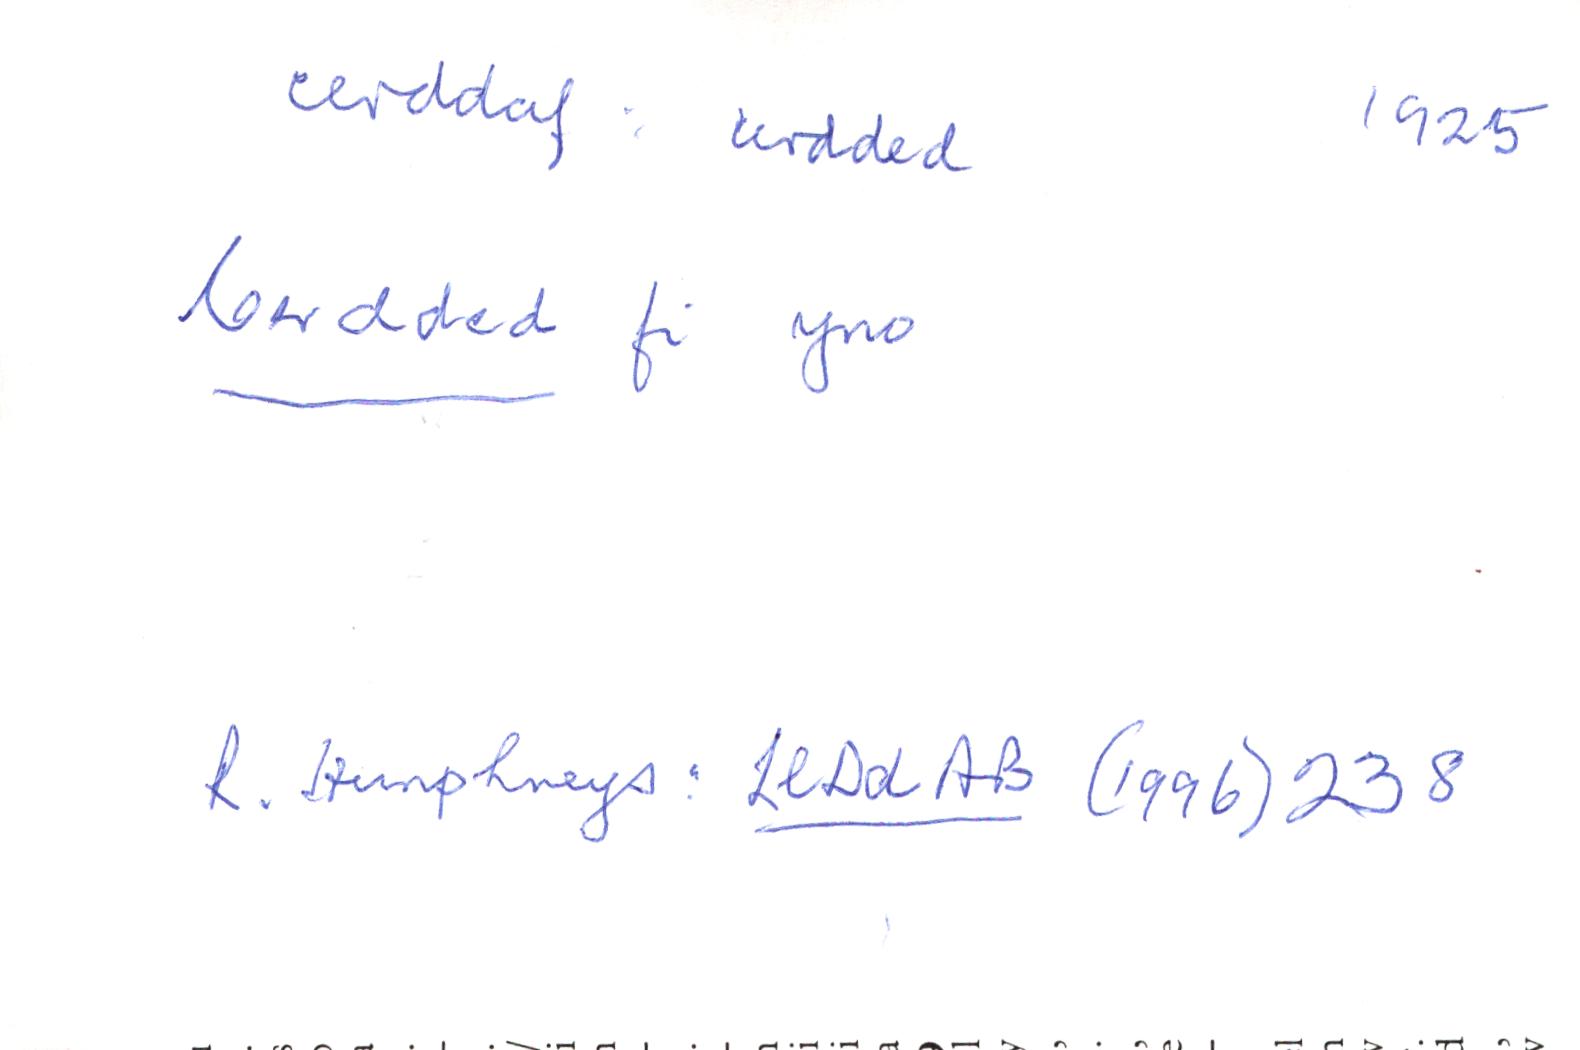 cerddaf : cerdded 1925
Cerdded fi yno
R. Humphreys: LlDdAB (1996) 238